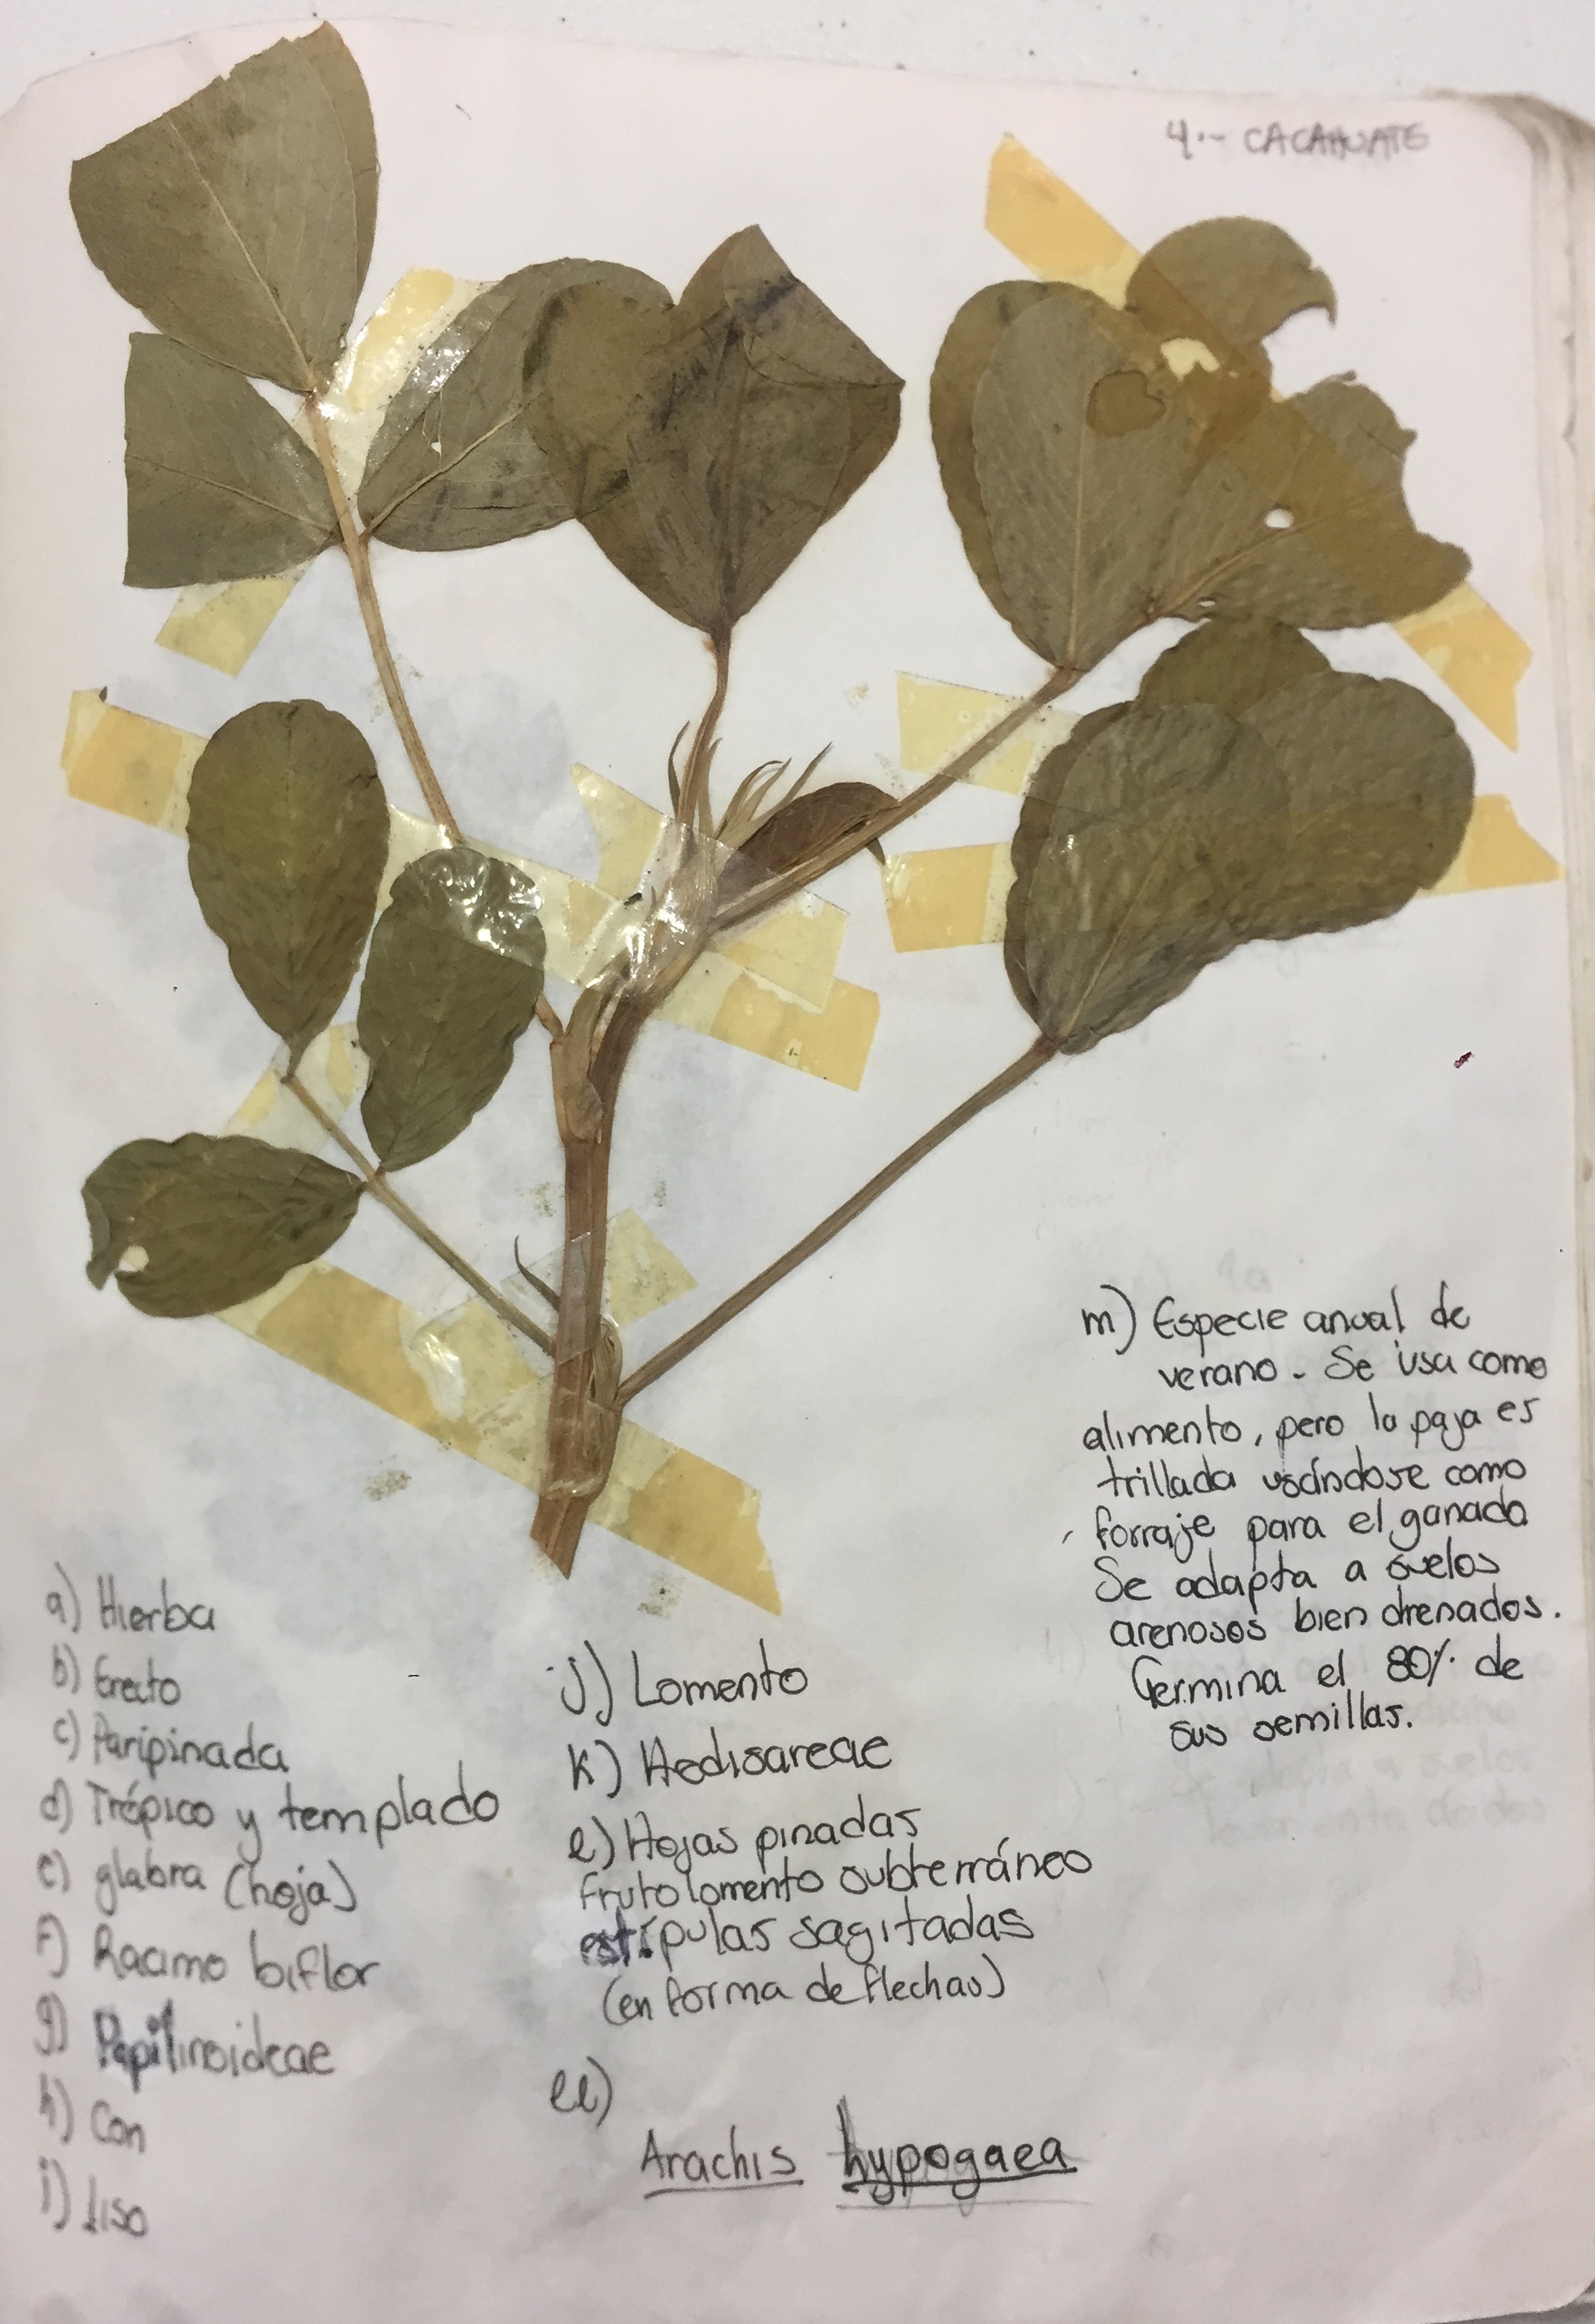 4.- CACAHUATE
a) Hierba
b) Erecto
c) Paripinada
d) Trópico y templado
e) glabra (hoja)
f) Racimo biflor
g) Papilinoideae
h) Con
i) Liso
j) Lomento
k) Hedisareae
l) Hojas pinadas
fruto lomento subterráneo
estípulas sagitadas
(en forma de flechas)
ll)
Arachis hypogaea
m) Especie anual de
verano. Se usa como
alimento, pero la paja es
trillada usándose como
forraje para el ganado
Se adapta a suelos
arenosos bien drenados.
Germina el 80% de
sus semillas.